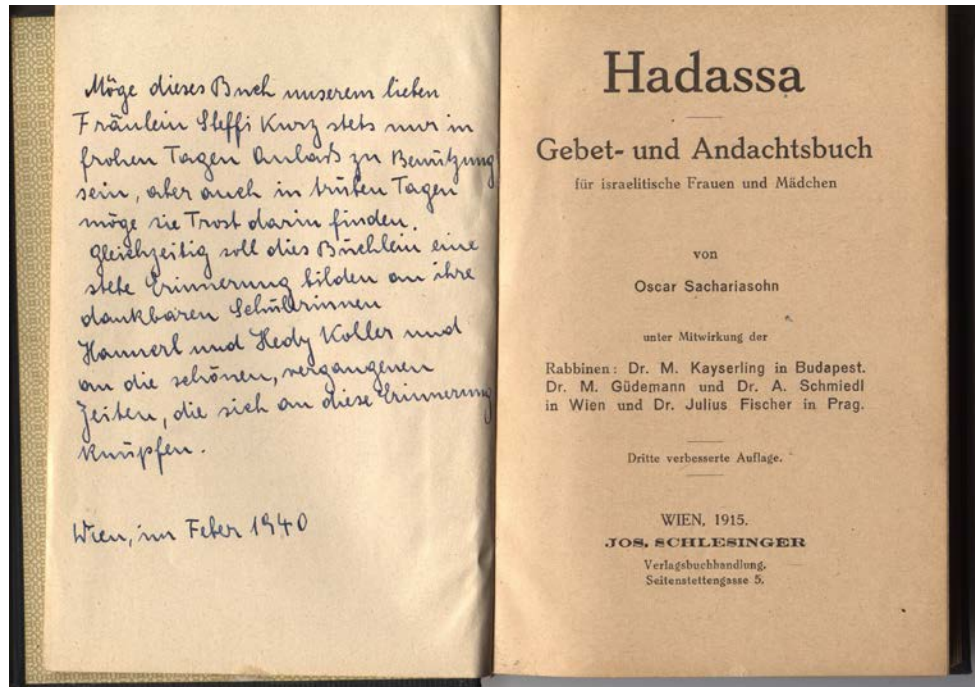 Möge dieses Buch unserem lieben
Fräulein Steffi Kurz stets nur in
frohen Tagen Anlaß zu Benützung
sein, aber auch in trüben Tagen
möge sie Trost darin finden.
Gleichzeitig soll dies Büchlein eine
stete Erinnerung bilden an ihre
dankbaren Schülerinnen
Hannerl und Hedy Koller und
an die schönen, vergangenen
Zeiten, die sich an diese Erinnerung
knüpfen.
Wien, im Feber 1940
Hadassa
Gebet- und Andachtsbuch
für israelitische Frauen und Mädchen
von
Oscar Sachariasohn
unter Mitwirkung der
Rabbinen: Dr. M. Kayserling in Budapest.
Dr. M. Güdemann und Dr. A. Schmiedl
in Wien und Dr. Julius Fischer in Prag.
Dritte verbesserte Auflage.
WIEN, 1915.
JOS. SCHLESINGER
Verlagsbuchhandlung.
Seitenstettengasse 5.